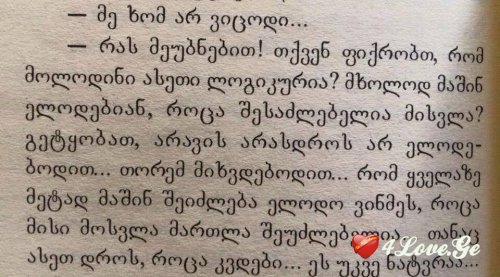 — მე ხომ არ ვიცოდი...
— რას მეუბნებით! თქვენ ფიქრობთ, რომ
მოლოდინი ასეთი ლოგიკურია? მხოლოდ მაშინ
ელოდებიან, როცა შესაძლებელია მისვლა?
გეტყობათ, არავის არასდროს არ ელოდე-
ბოდით... თორემ მიხვდებოდით... რომ ყველაზე
მეტად მაშინ შეიძლება ელოდო ვინმეს, როცა
მისი მოსვლა მართლა შეუძლებელია... თანაც
ასეთ დროს, როცა კვდები... ეს უკვე ნატვრაა...
4Love.Ge